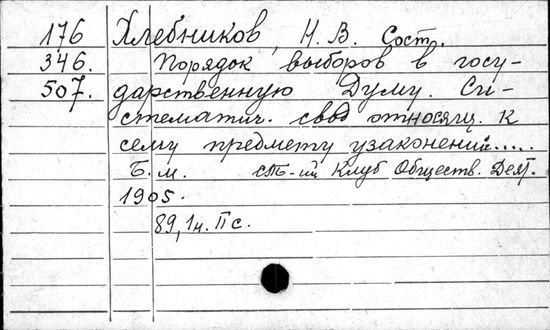 176 Хлебников, Н. В. Сост.
346. Порядок выборов в госу-
507. дарственную Думу. Си-
стематич. свод относящ. к
сему предмету узаконений.....
Б. м. Клуб Обществ. Деят.
1905.
89, 1н. II с.